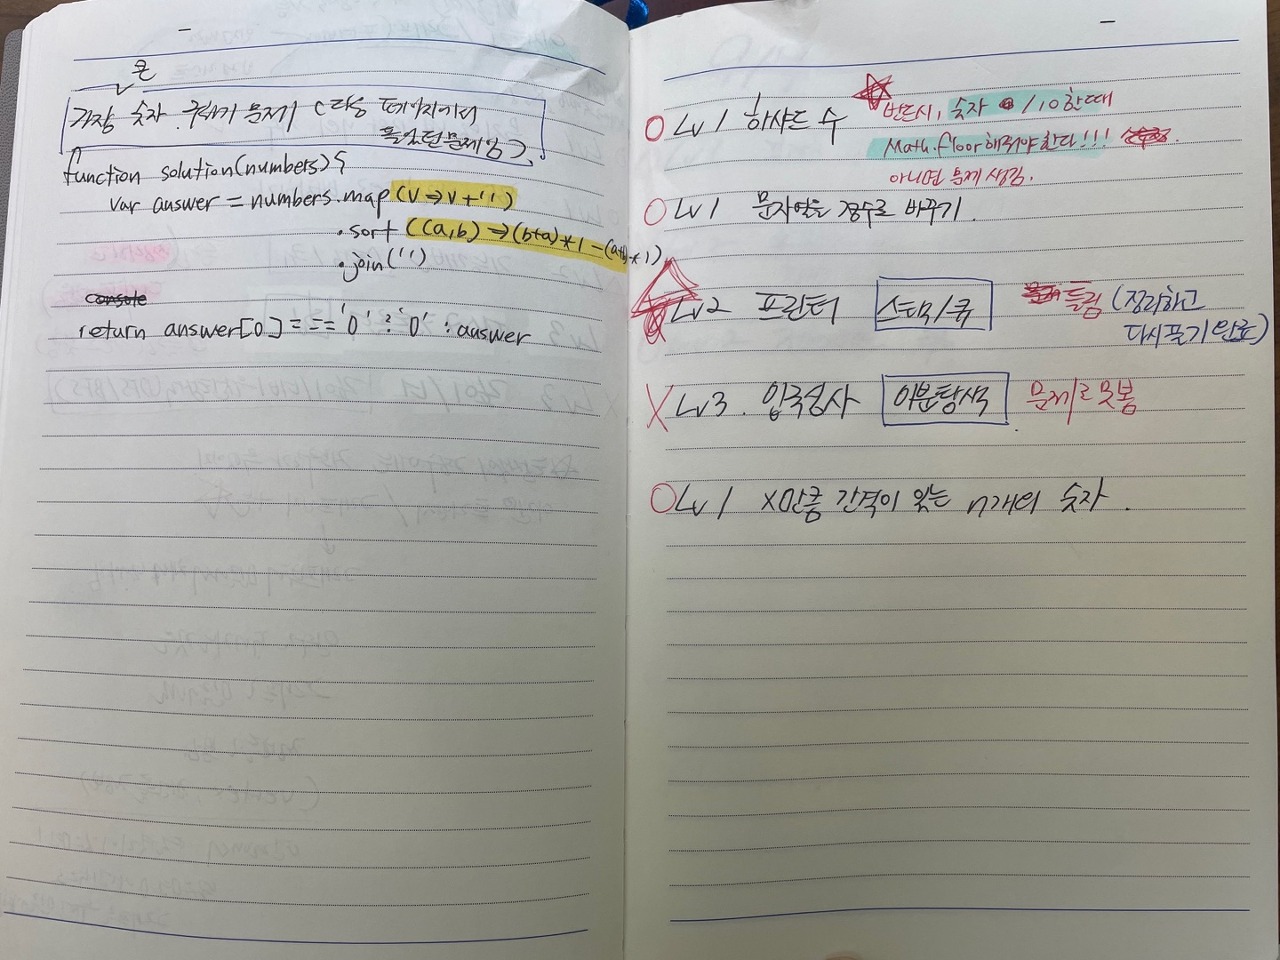 큰
가장 숫자 구하기 문제 (다음 페이지에서
풀었던 문제임)
function solution(numbers){
var answer = numbers.map(v=>v+'')
.sort((a,b)=>(b+a)*1-(a+b)*1)
.join('')
console
return answer[0]==='0' ? '0' : answer
O Lv1 하샤드 수 반드시, 숫자 /10 할때
Math.floor 해줘야한다!!!
아니면 문제 생김.
O Lv1 문자열을 정수로 바꾸기.
Lv2 프린터 스택/큐 틀림 (정리하고
다시풀기 완료)
X Lv3. 입국심사 이분탐색 문제도 못봄
O Lv1 x만큼 간격이 있는 n개의 숫자.